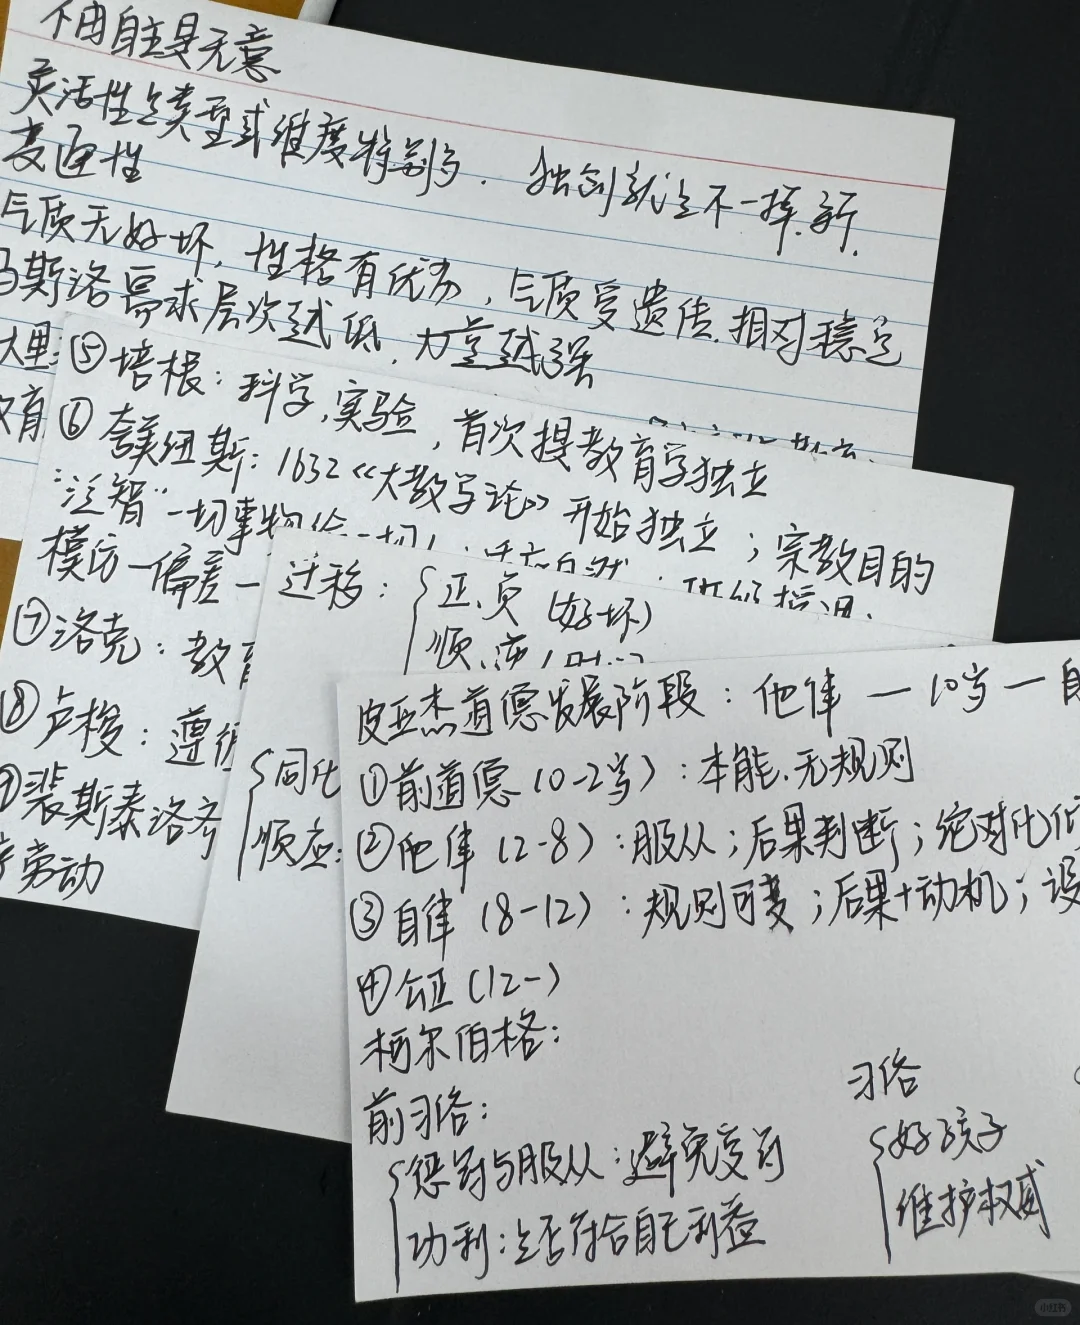 不由自主是无意
灵活性是类型或维度特别多. 独创就是不一样.新.
变通性
气质无好坏, 性格有优劣, 气质受遗传.相对稳定
马斯洛需求层次越低, 力量越强
⑤培根: 科学,实验, 首次提教育学独立
⑥夸美纽斯: 1632《大教学论》开始独立; 宗教目的
"泛智"一切事物给一切
模仿—偏差—
⑦洛克: 教育
⑧卢梭: 遵循
裴斯泰洛齐
劳动
迁移: {正.负 (好坏)
顺.逆
{同化
顺应:
皮亚杰道德发展阶段: 他律 — 10岁 — 自
①前道德 (0-2岁): 本能.无规则
②他律 (2-8): 服从; 后果判断; 绝对化
③自律 (8-12): 规则可变; 后果+动机; 设
④公正 (12-)
柯尔伯格:
前习俗:
{惩罚与服从: 避免受罚
功利: 是否符合自己利益
习俗
{好孩子
维护权威
小红书